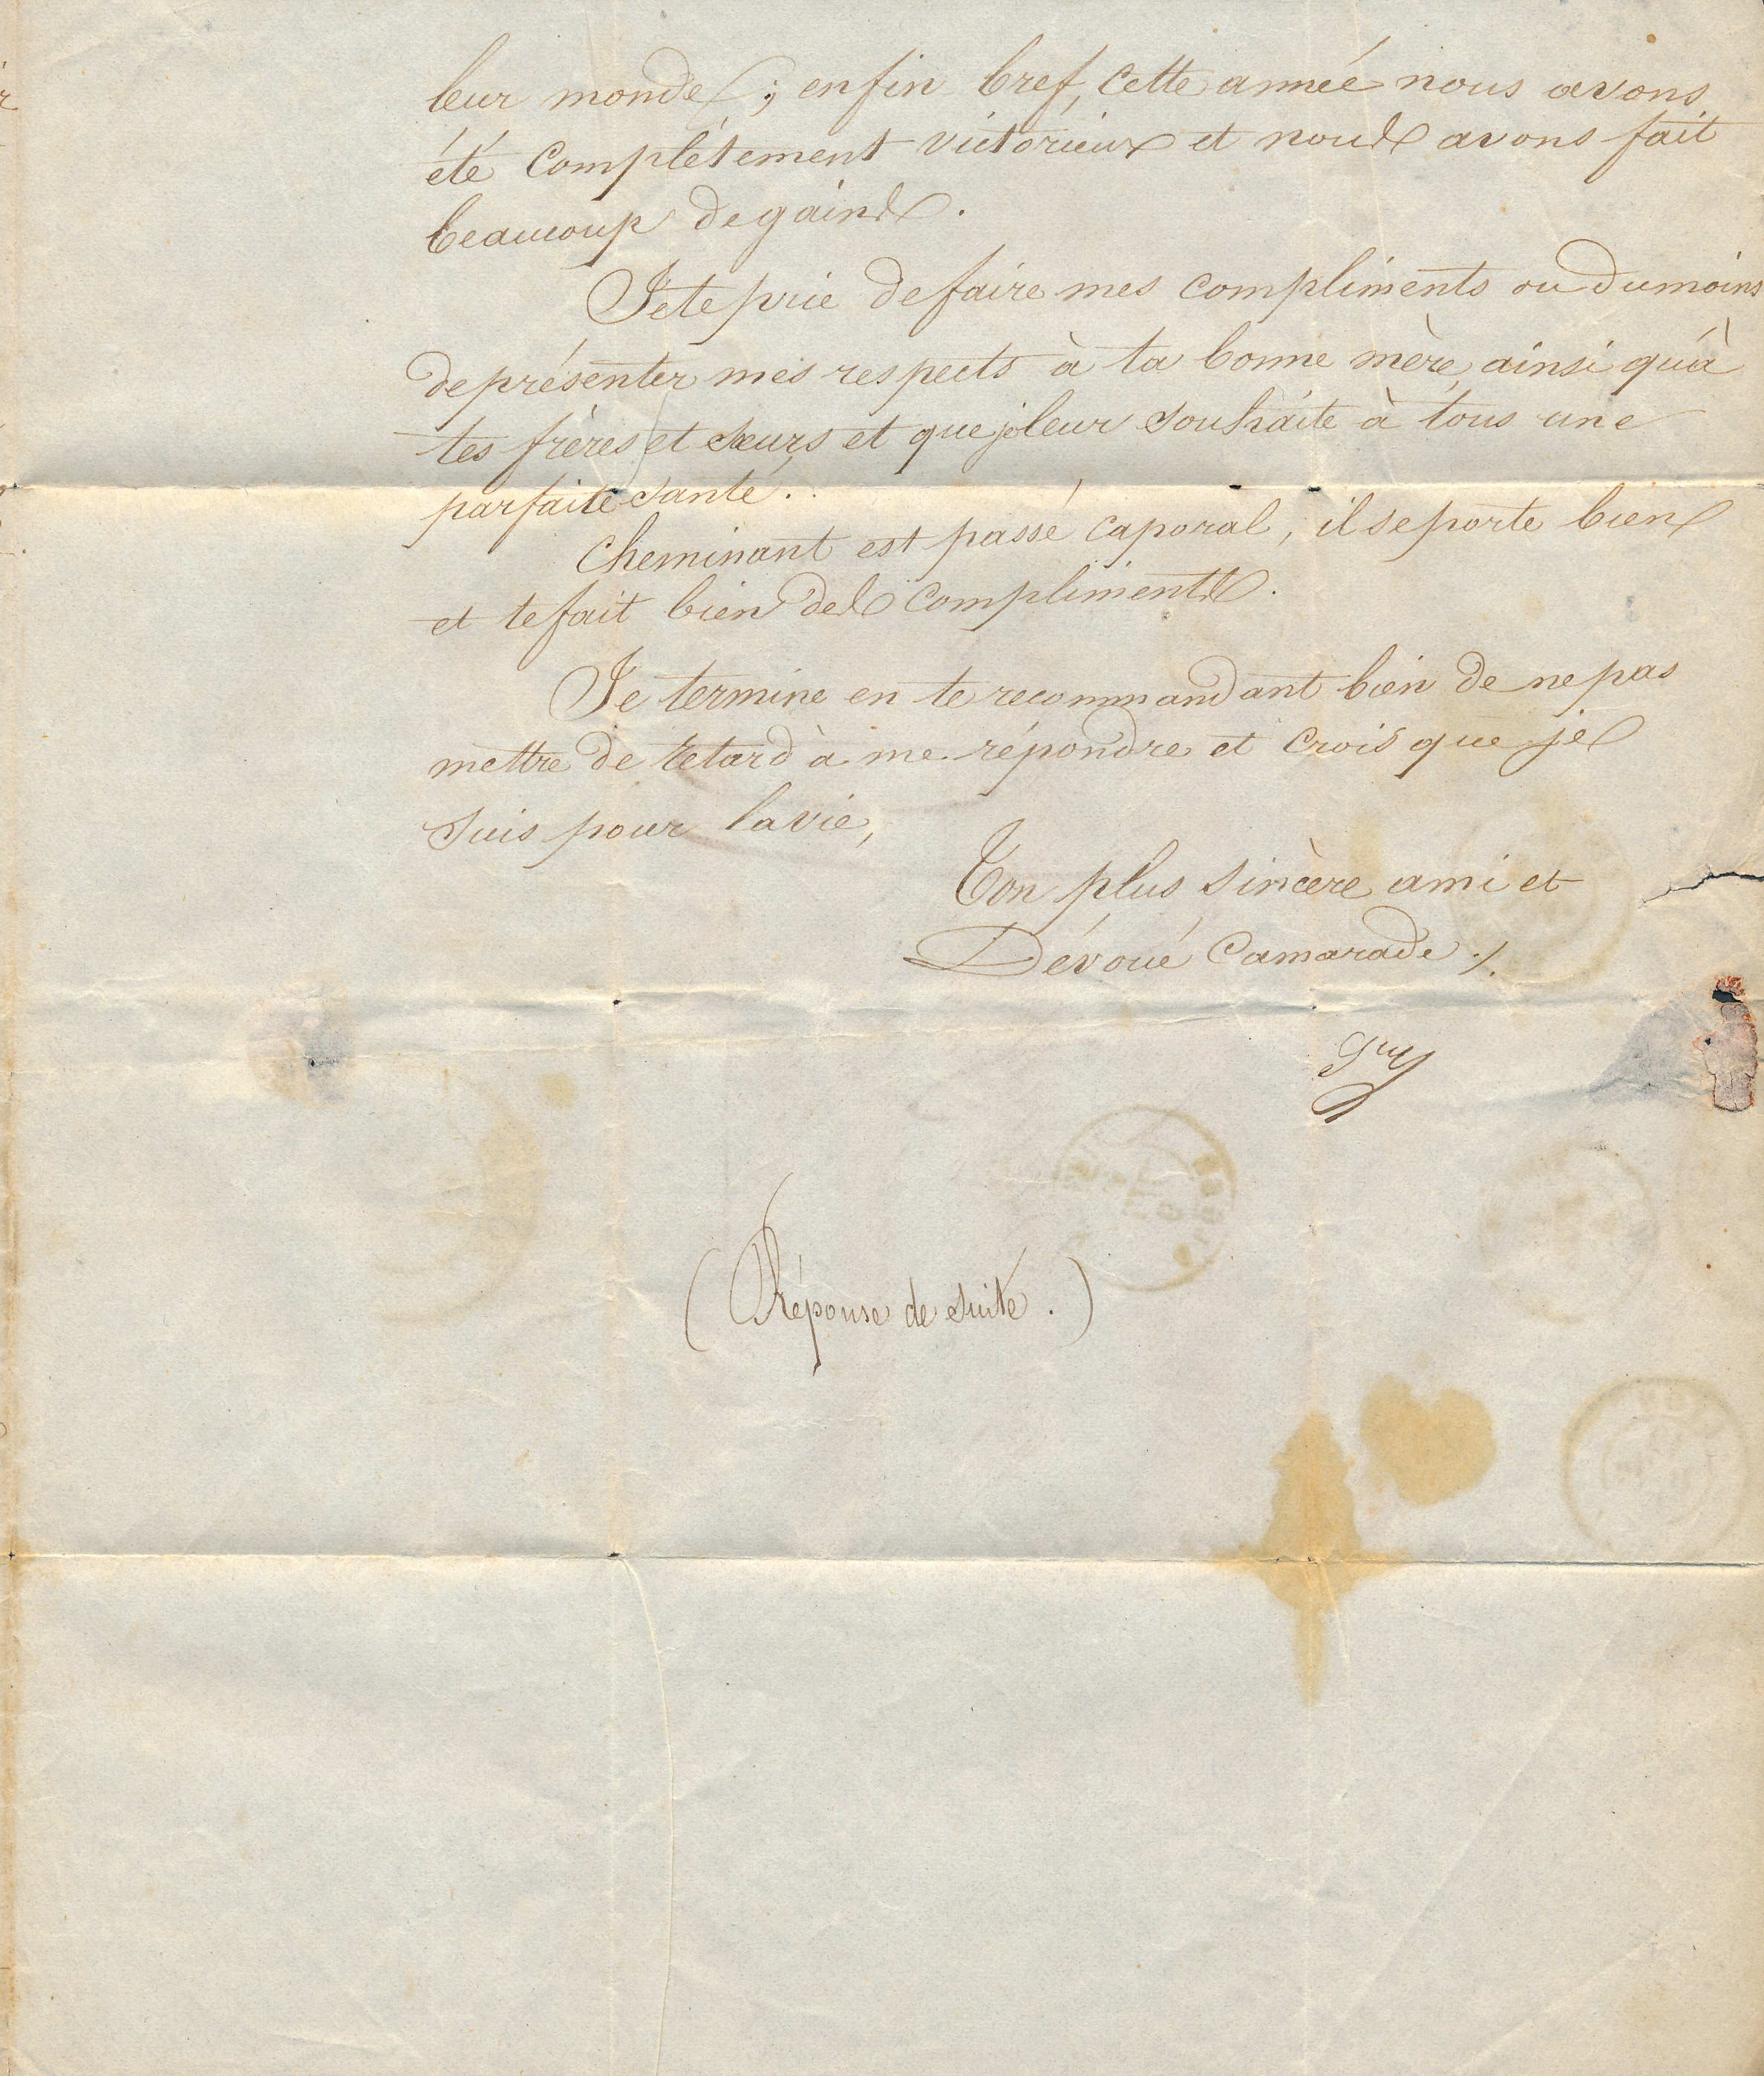 leur monde ; enfin bref, cette année nous avons
été complétement victorieux et nous avons fait
beaucoup de gains.
Je te prie de faire mes compliments ou du moins
de présenter mes respects à ta bonne mère, ainsi qu'à
tes frères et sœurs et que je leur souhaite à tous une
parfaite santé.
Cheminant est passé caporal, il se porte bien
et te fait bien des compliments.
Je termine en te recommandant bien de ne pas
mettre de retard à me répondre et crois que je
suis pour la vie,
Ton plus sincère ami et
Dévoué Camarade ./.
(Réponse de suite.)